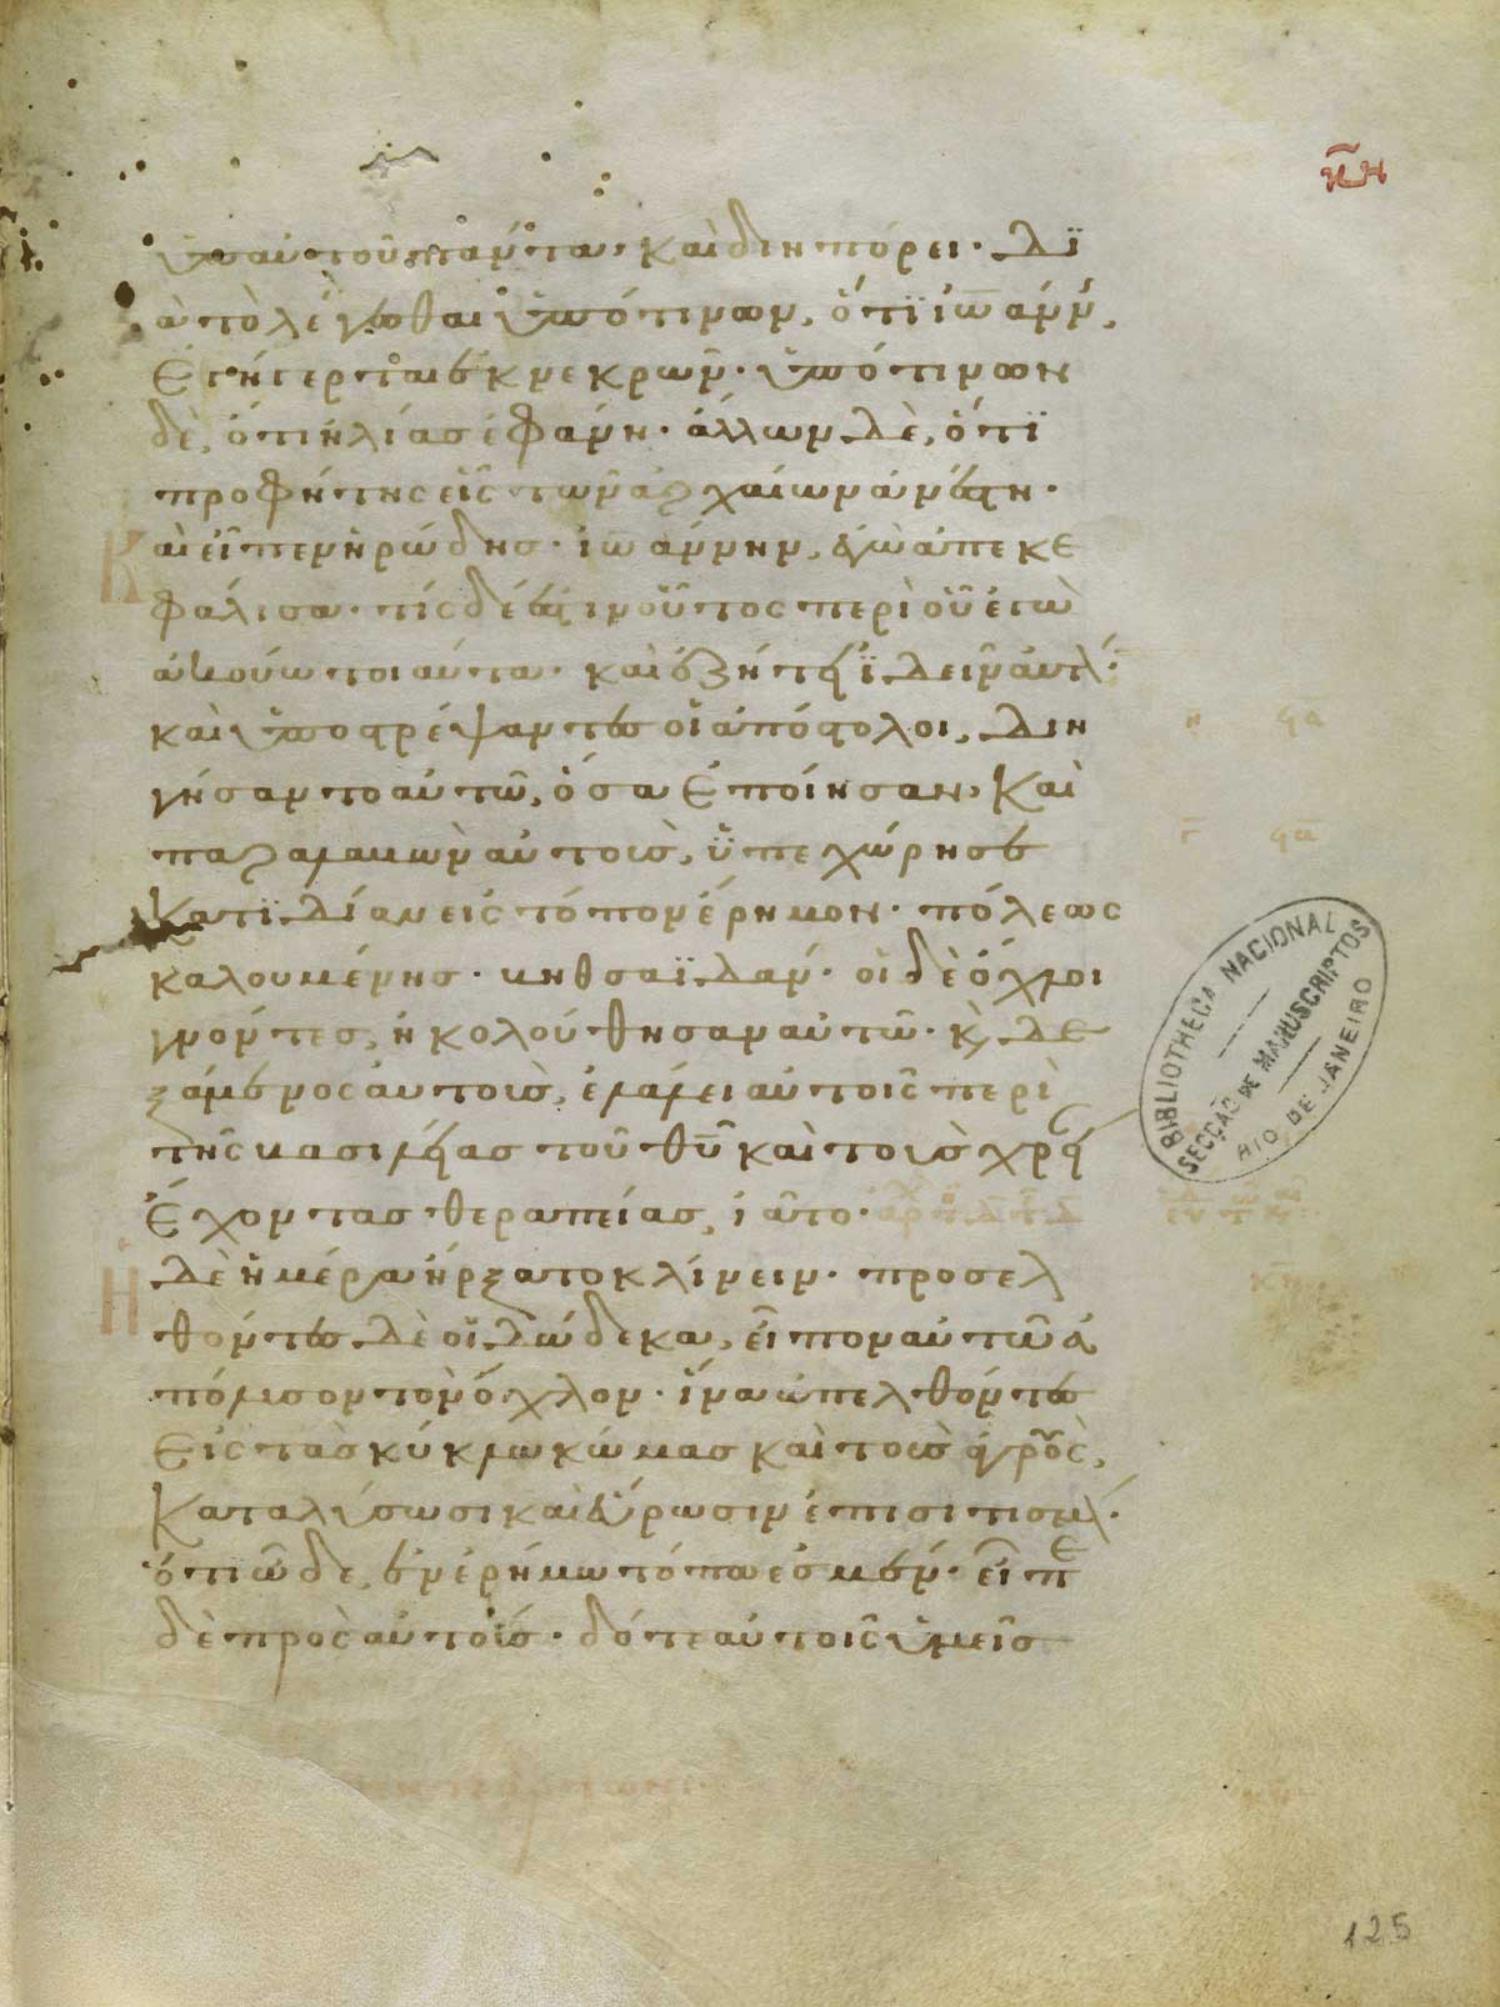 κη
ὑπ αὐτοῦ πάντα· καὶ διηπόρει· δϊ
ὰ τὸ λέγεσθαι ὑπό τινων, ὅτϊ ἰω̅άνν,
ἐγήγερται ἐκ νεκρῶν· ὑπό τινων
δὲ, ὅτι ἠλίας ἐφάνη· ἄλλων δὲ, ὅτϊ
προφήτης εἷς τῶν ἀρχαίων ἀνέστη·
Καὶ εἶπεν ἡρώδης· ἰω̅άννην, ἐγὼ ἀπεκε
φάλισα· τίς δέ ἐστιν οὗτος περὶ οὗ ἐγὼ
ἀκούω τοιαύτα· καὶ ἐζήτει ἰδεῖν αυτ·
καὶ ὑποστρέψαντες οἱ ἀπόστολοι, διη
γήσαντο αὐτῶ, ὅσα ἐποίησαν, Καὶ
παραλαβὼν αὐτοὺς, ὑπεχώρησε
Κατϊδίαν εἰς τόπον ἔρημον· πόλεως
καλουμένης· βηθσαϊδάν· οἱ δὲ ὄχλοι
γνόντες, ἠκολούθησαν αὐτῶ· κ, δε
ξάμενος αυτοὺς, ἐλάλει αὐτοῖς περὶ
τῆς βασιλείας τοῦ θ̅υ̅ καὶ τοὺς χρεί
Ἐχοντας θεραπείας, ἰᾶτο·
Ἡ δὲ ἡμέρα ἤρξατο κλίνειν· προσελ
θόντες δὲ οἱ δώδεκα, εἶπον αὐτῶ ἀ
πόλυσον τὸν ὄχλον· ἵνα ἀπελθόντες
Εἰς τὰς κύκλω κώμας καὶ τοὺς ἀγροὺς,
Καταλύσωσι καὶ εὕρωσιν ἐπισιτισμ·
ὅτι ὧδε, ἐν ἐρήμω τόπω ἐσμέν· εἶπε
δὲ πρὸς αὐτούς· δότε αὐτοῖς ὑμεῖς
BIBLIOTHECA NACIONAL
SECÇÃO DE MANUSCRIPTOS
RIO DE JANEIRO
125